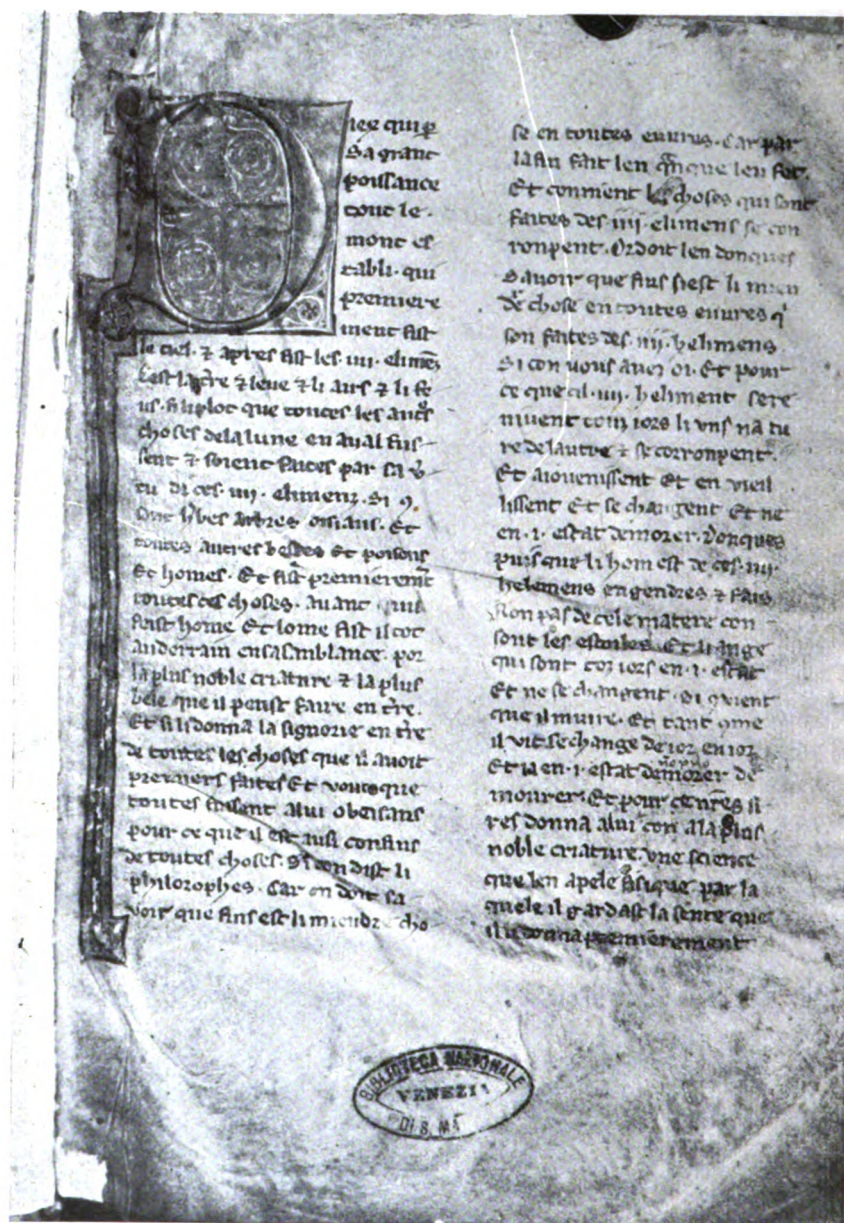 Diex qui p
sa grant
poissance
tout le
mont es
tabli. qui
premiere
ment fist
le ciel. ⁊ apres fist les .iiii. elimens
Cest la tre ⁊ leue ⁊ li airs ⁊ li fe
us. si li plot que toutes les autres
choses de la lune en aual fus-
sent ⁊ soient faites par sa v̾
tu di ces .iiii. elimenz. Si ꝯ
sont h̾bes arbres oisiaus. Et
toutes autres bestes Et poisons
Et homes. Et fist premierem̅t
toutes ces choses. auant quil
feist home Et lome fist il tot
au derrain en sa samblance. por
la plus noble criature ⁊ la plus
bele que il peust faire en tre.
Et si li donna la signorie en tre
de toutes les choses que il auoit
premiers faites Et vout que
toutes fusent a lui obeisans
pour ce que il est ausi con fins
de toutes choses. Si con dist li
philosophes. Car on doit sa
voir que fins est li mieudre cho
se en toutes euures. Car par
la fin fait len q̅nque len fet.
Et conment les choses qui sont
faites des .iiii. elimens se con
ronpent. Or doit len donques
sauoir que fins si est li mieu
dre chose en toutes euures q'
son faites des .iiii. helimens
Si con vous auez oi. Et pour
ce que cil .iiii. heliment se re
muent touz iors li vns na tu
re de lautre ⁊ se corronpent.
Et aiouenissent Et en vieil
lissent Et se changent Et ne
en .i. estat demorer. Donques
puis que li hom est de ces .iiii.
helemens engendres ⁊ fais
Non pas de cele matere con
sont les estoiles Et li ange
qui sont toz iors en .i. estat
Et ne se changent. Si ꝯuient
que il muire. Et tant ꝯme
il vit se change de ior en ior
Et ia en .i. estat demorer de
mourer. Et pour ce nr̅es si
res donna a lui con a la plus
noble criature. vne science
que len apele fisique par la
quele il gardast la sente que
il li donna premierement
BIBLIOTECA NAZIONALE
VENEZIA
DI S. MA